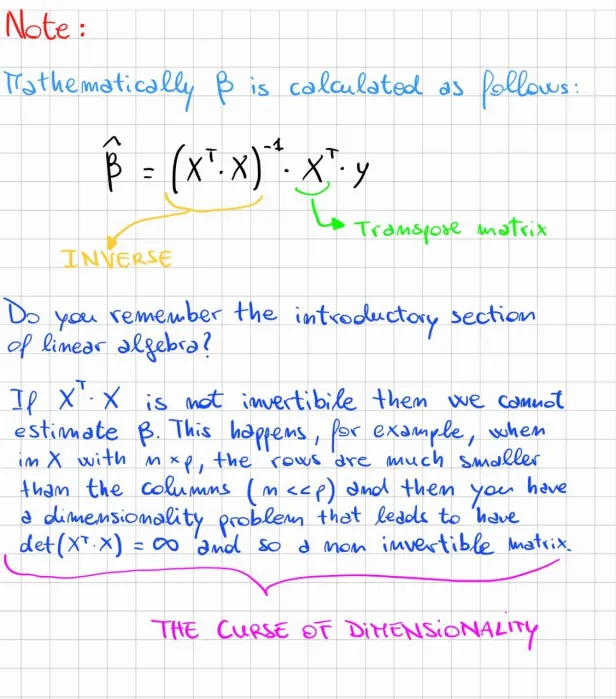 Note:
Mathematically β is calculated as follows:
β̂ = (Xᵀ·X)⁻¹ · Xᵀ · y
Transpose matrix
INVERSE
Do you remember the introductory section
of linear algebra?
If Xᵀ·X is not invertibile then we cannot
estimate β. This happens, for example, when
in X with n×p, the rows are much smaller
than the columns (n<<p) and then you have
a dimensionality problem that leads to have
det(Xᵀ·X) = ∞ and so a non invertible matrix.
THE CURSE OF DIMENSIONALITY